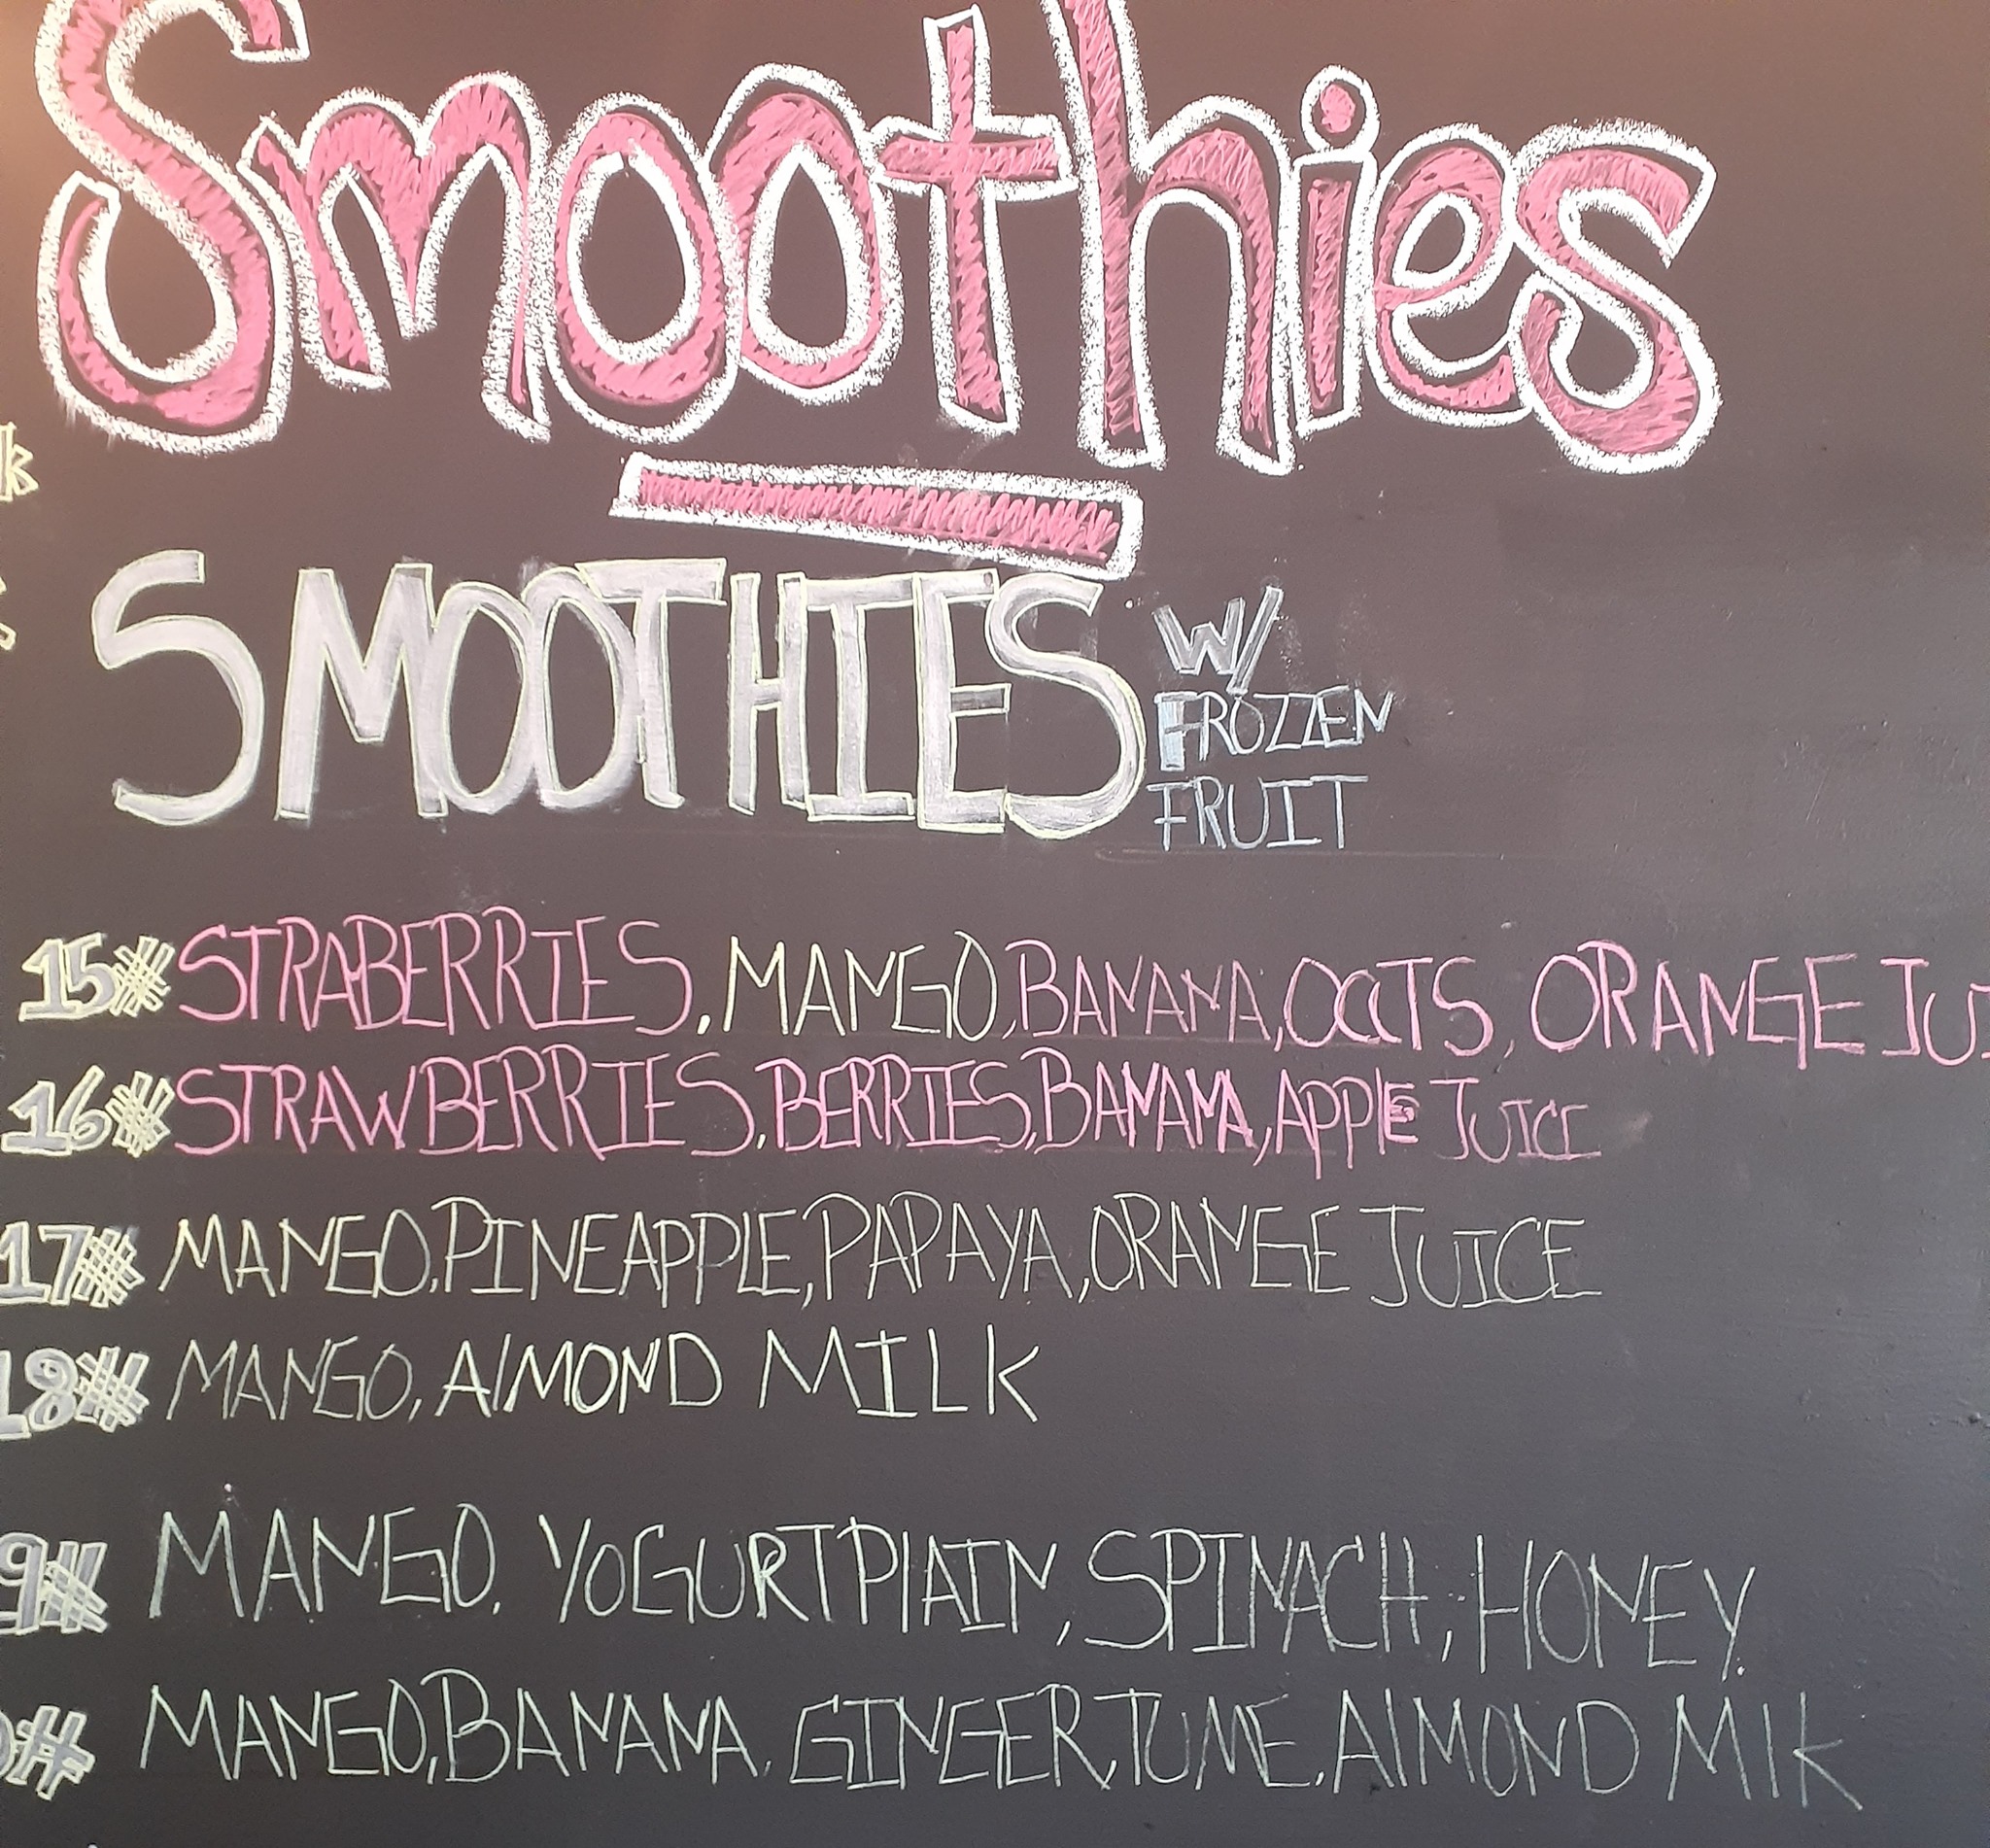 Smoothies
SMOOTHIES W/
FROZZEN
FRUIT
k
15# STRABERRIES, MANGO, BANANA, OATS, ORANGE JUI
16# STRAWBERRIES, BERRIES, BANANA, APPLE JUICE
17# MANGO, PINEAPPLE, PAPAYA, ORANGE JUICE
18# MANGO, AlMOND MILK
9# MANGO, YOGURT PlAIN, SPINACH, HONEY.
0# MANGO, BANANA, GINGER, TUME, AlMOND MIK